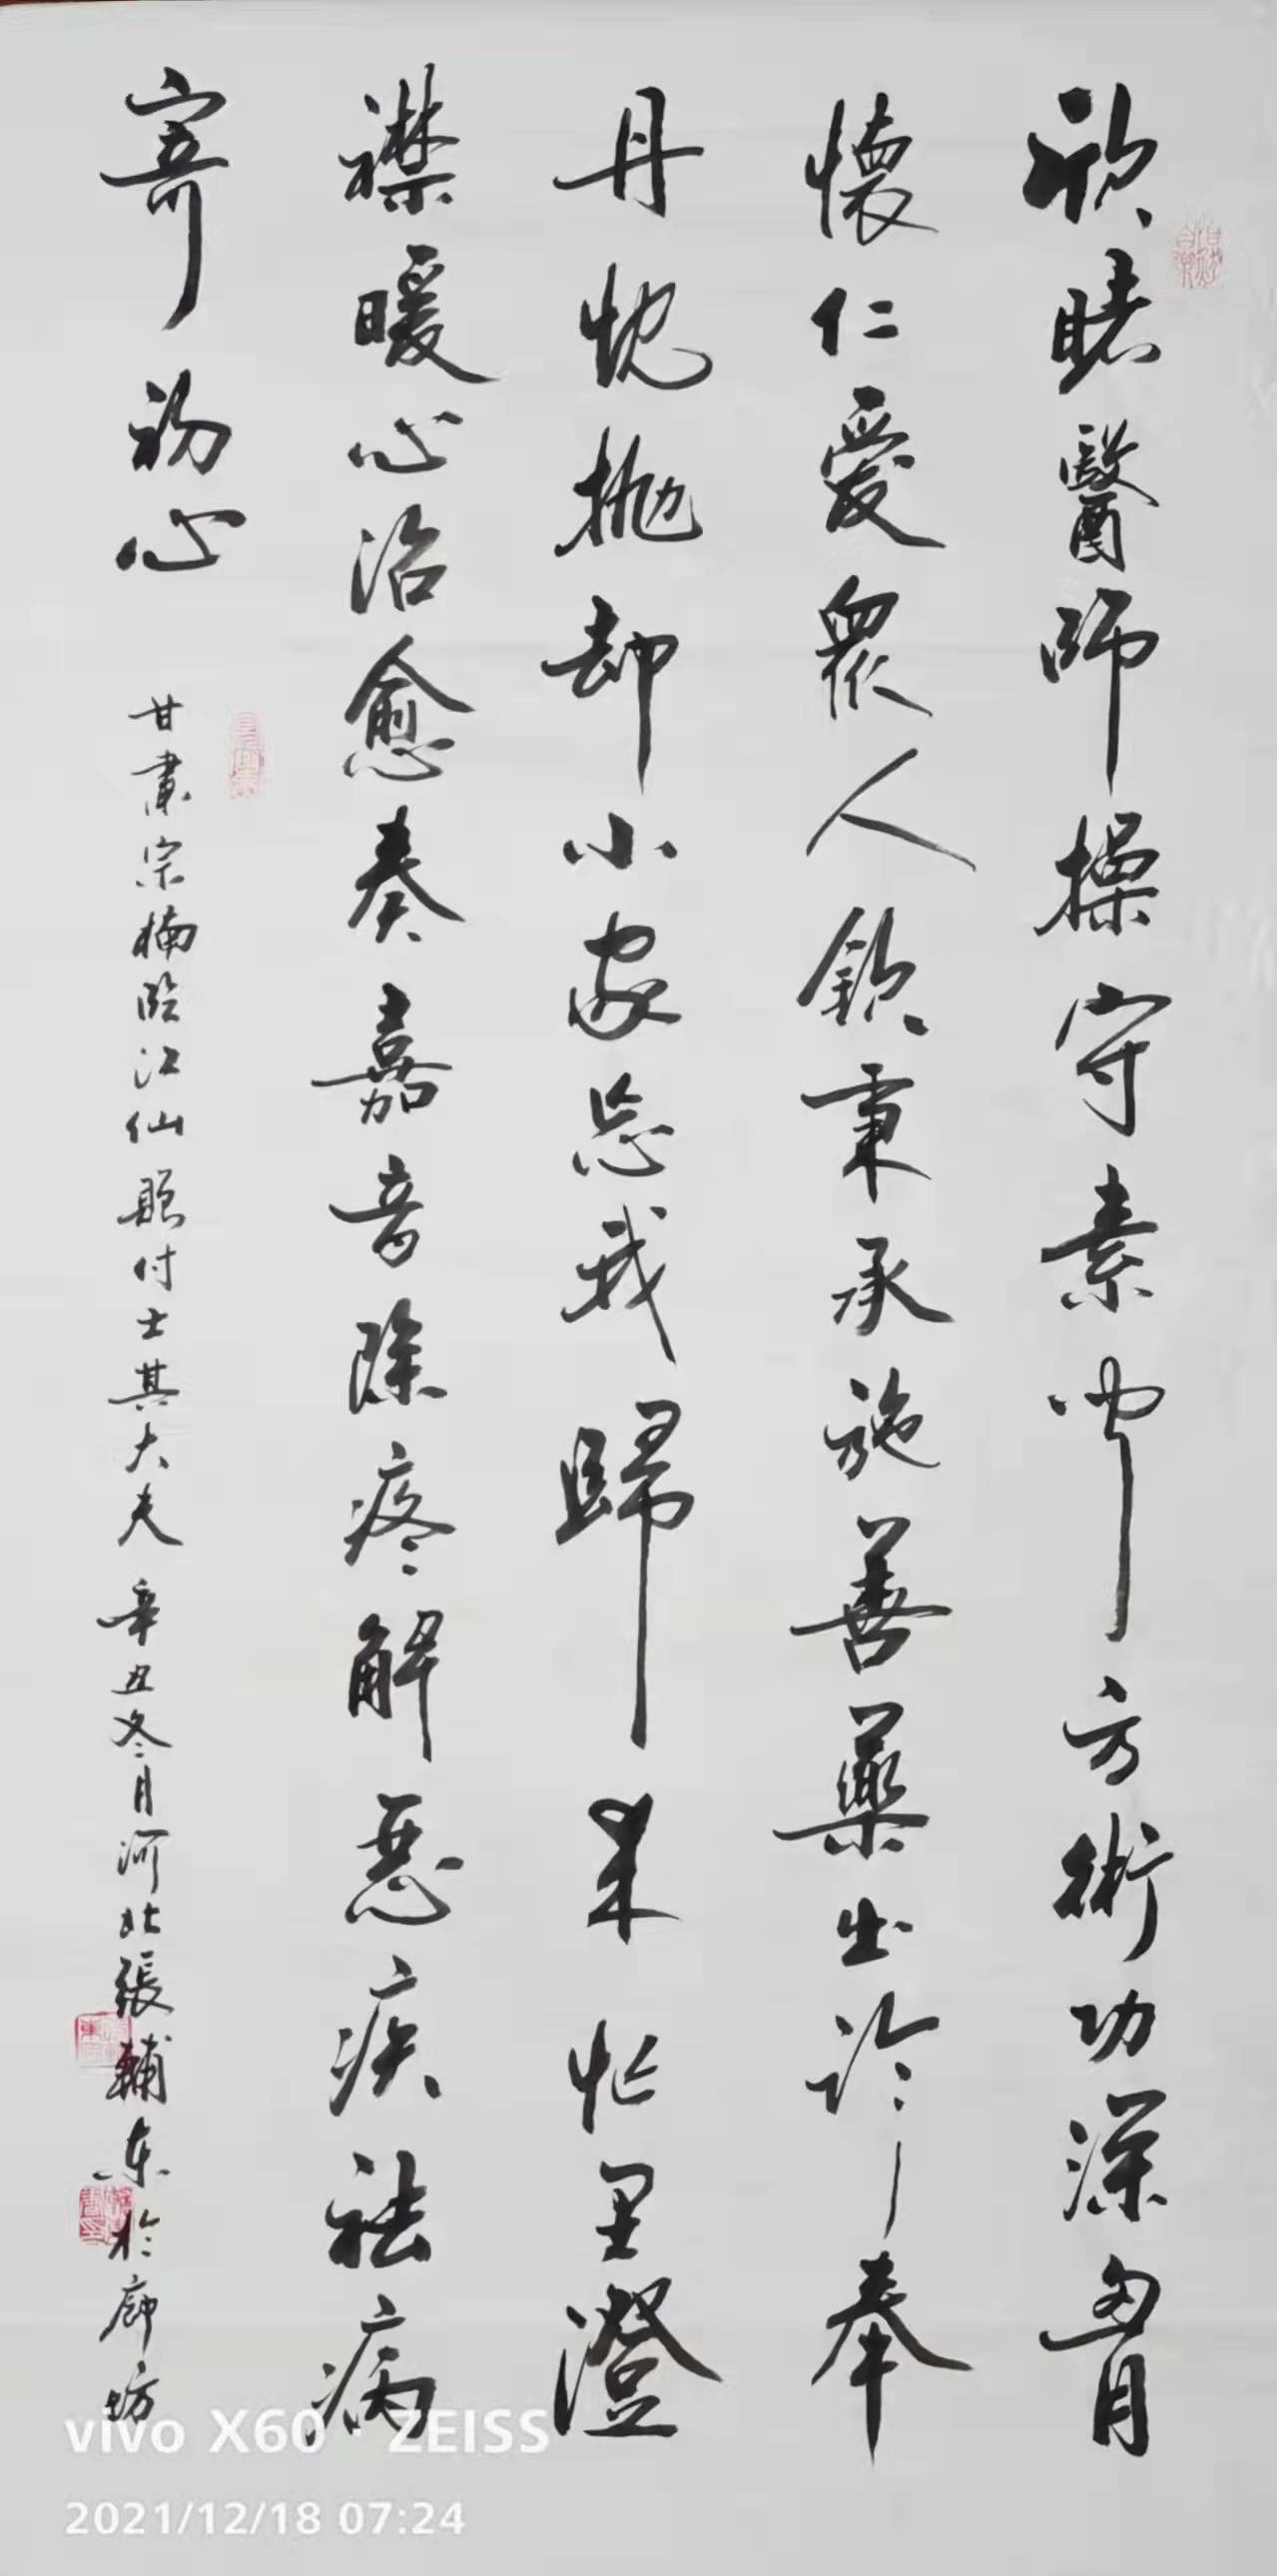 欣睹醫師操守素聞方術功深胷
懷仁愛衆人欽秉承施善藥出診奉
丹忱抛却小家忘我歸來忙里澄
襟暖心治愈奏嘉音除疼解惡疾祛病
寄初心
甘肅宗楠臨江仙賦付士其大夫辛丑冬月河北張輔东於廊坊
vivo X60 · ZEISS
2021/12/18 07:24